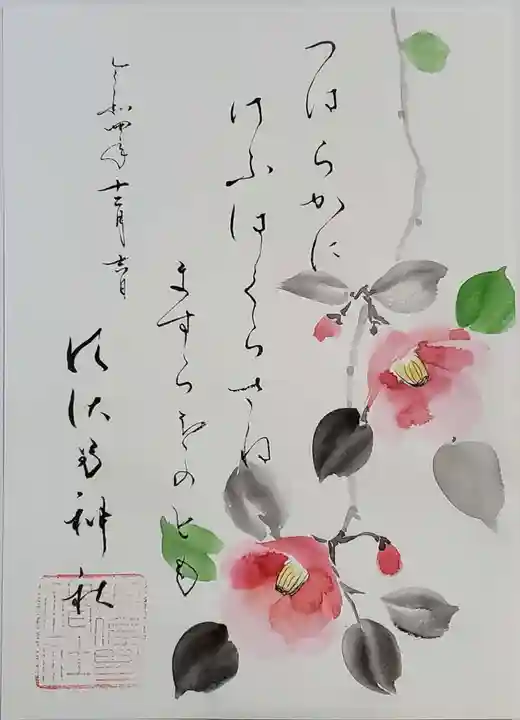 つはらかに
けふはくらさね
ますらをのとも
令和四年十二月
神社